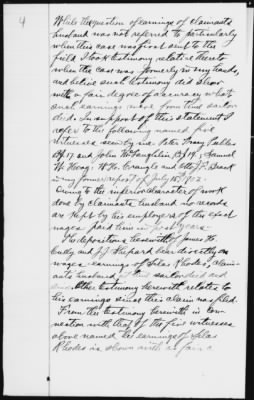 4
While the question of earnings of claimants
husband was not referred to particularly
when this case was first sent to the
field I took testimony relative thereto
when the case was formerly in my hands,
and believe such testimony did show
with a fair degree of accuracy what
such earnings were from time sailor
died. In support of this statement I
refer to the following named five
witnesses seen by me. Peter
and John McLaughlin Samuel
W. W. H. Craig and
in my former report of July 15,
Owing to the inferior character of work
done by claimants husband no records
are kept by his employers of the exact
wages paid him in past years.
The depositions herewith of James H.
and J. J. Shepard bear directly on
wages earnings of Silas Rhodes, claim-
ants husband, sailor died and
Other testimony herewith relates to
his earnings since this claim was filed.
From the testimony herewith in con-
nection with that of the five witnesses
above named the earnings of Silas
Rhodes is shown with as fair a